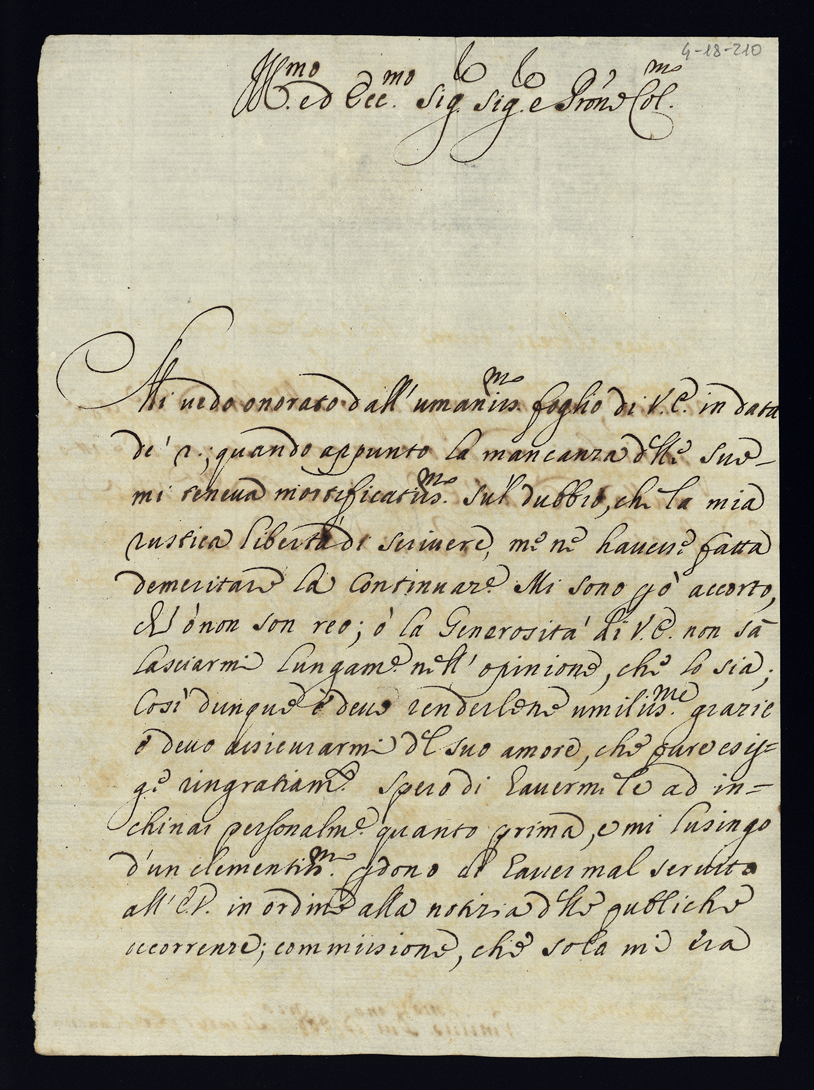 4-18-210
Ill.mo ed Ecc.mo Sig.e Sig.e e Pron.e Col.mo
Mi vedo onorato dall' umaniss.mo foglio di V.E. in data
de' 2.; quando appunto la mancanza delle sue
mi teneva mortificatiss.mo sul dubbio, che la mia
rustica libertà di scrivere, me ne havesse fatta
demeritare la continuaz.e Mi sono però accorto,
ch' ò non son reo; ò la Generosità di V.E. non sà
lasciarmi lungam.e nell' opinione, che lo sia;
Così dunque è devo renderlene umiliss.me grazie
è devo assicurarmi del suo amore, che pure esig=
ge ringratiam.ti Spero di havermele ad in=
chinar personalm.e quanto prima, e mi lusingo
d'un clementiss.mo perdono di haver mal servito
all' E.V. in ordine alla notizia delle publiche
occorrenze; commissione, che sola mi era